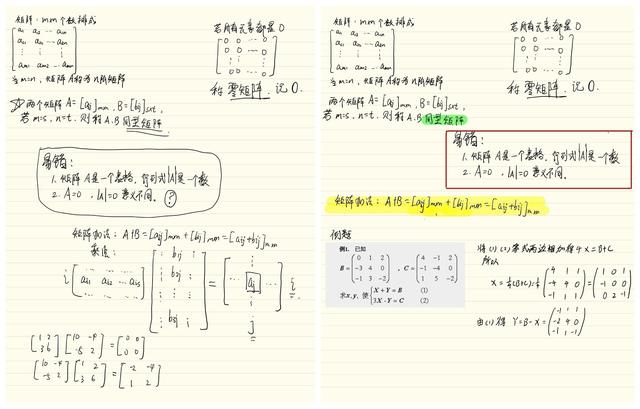 矩阵：m×n个数排成
a11 a12 … a1n
a21 a22 … a2n
⋮ ⋮ ⋮
am1 am2 … amn
若所有元素都是0
0 0 … 0
0 0 … 0
⋮
0 0 … 0
称 零矩阵．记0．
当m=n，矩阵A称为n阶矩阵
两个矩阵 A=[aij]mxn，B=[bij]sxt，
若m=s，n=t．则称A.B 同型矩阵
易错：
1. 矩阵A是一个表格，行列式|A|是一个数
2. A=0 ，|A|=0 意义不同．?
矩阵加法：A+B=[aij]mxn+[bij]mxn=[aij+bij]mxn
乘法：
i [ai1 ai2 … ais] [… b1j … b2j … bsj …] = [… aij …] i
j
[1 2 3 6] [10 -4 -5 2] = [0 0 0 0]
[10 -4 -5 2] [1 2 3 6] = [-2 -4 1 2]
矩阵：m×n个数排成
a11 a12 … a1n
a21 a22 … a2n
⋮ ⋮ ⋮
am1 am2 … amn
若所有元素都是0
0 0 … 0
0 0 … 0
⋮
0 0 … 0
称 零矩阵．记0．
当m=n，矩阵A称为n阶矩阵
两个矩阵 A=[aij]mxn，B=[bij]sxt，
若m=s，n=t．则称A.B 同型矩阵
易错：
1. 矩阵A是一个表格，行列式|A|是一个数
2. A=0 ，|A|=0 意义不同．
矩阵加法：A+B=[aij]mxn+[bij]mxn=[aij+bij]mxn
例题
例1．已知
B= (0 1 2 -3 4 0 -1 3 -2) ，C= (4 -1 2 -1 -4 2 -1 -1 -2)
求x,y，使 {X+Y=B (1)
3X-Y=C (2)
将(1)(2)等式两边相加得4X=B+C
所以
X=¼(B+C)=¼ (4 1 1 -4 4 0 -1 1 1) = (1 0 1 -1 1 0 0 2 -1)
由(1)得 Y=B-X= (-1 1 1 -2 4 0 -1 1 -1)